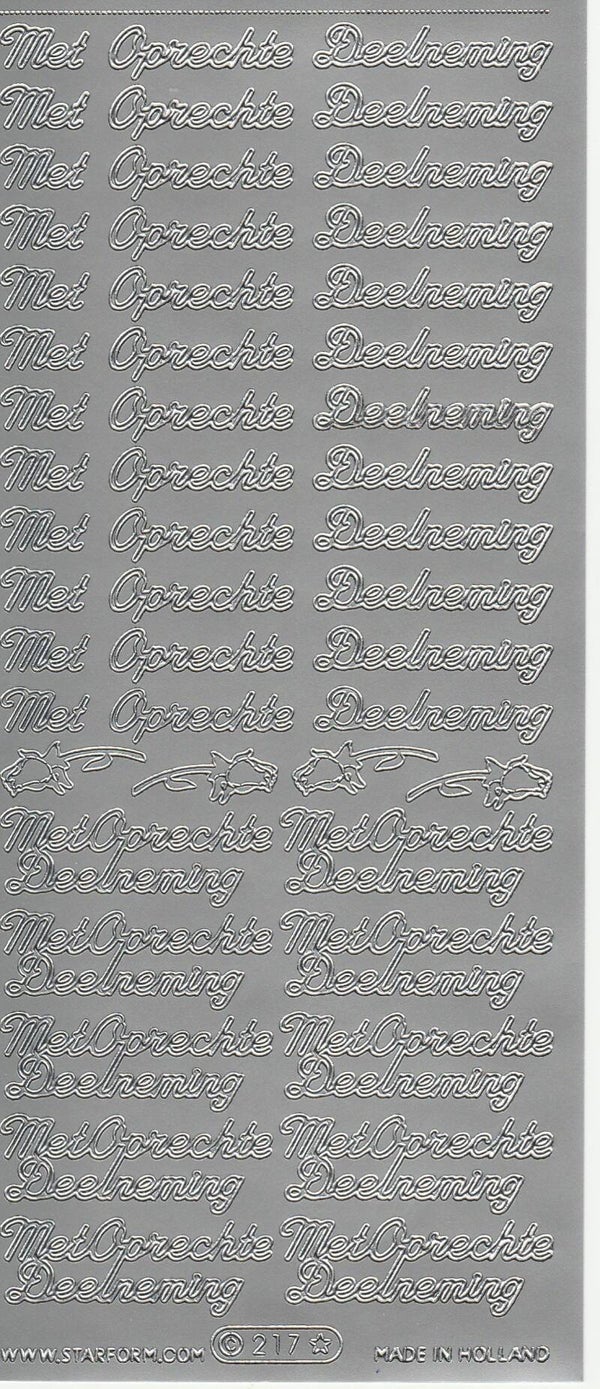 Met Oprechte Deelneming
Met Oprechte Deelneming
Met Oprechte Deelneming
Met Oprechte Deelneming
Met Oprechte Deelneming
Met Oprechte Deelneming
Met Oprechte Deelneming
Met Oprechte Deelneming
Met Oprechte Deelneming
Met Oprechte Deelneming
Met Oprechte Deelneming
Met Oprechte Deelneming
Met Oprechte Met Oprechte
Deelneming Deelneming
Met Oprechte Met Oprechte
Deelneming Deelneming
Met Oprechte Met Oprechte
Deelneming Deelneming
Met Oprechte Met Oprechte
Deelneming Deelneming
Met Oprechte Met Oprechte
Deelneming Deelneming
WWW.STARFORM.COM © 217 ☆ MADE IN HOLLAND